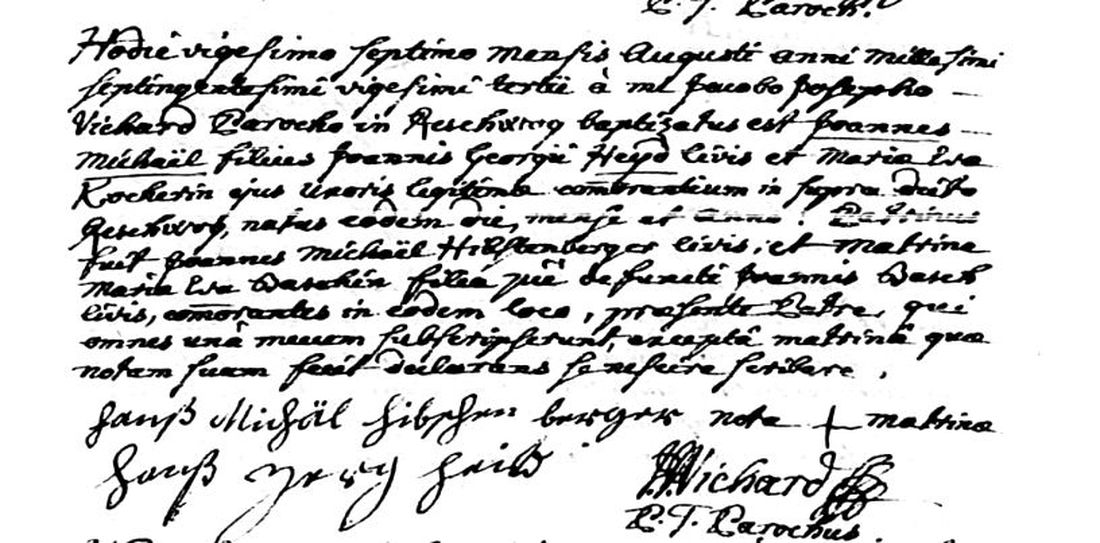 P. T. Paroch.
Hodie vigesimo septimo mensis Augusti anni millesimi
septingentesimi vigesimi tertii à me Jacobo Josepho
Vichard Parocho in Reschwog baptizatus est Joannes
Michaël filius Joannis Georgii Heyd civis et Maria Eva
Kocherin ejus uxoris legitima comorantium in supra dicto
Reschwog, natus eodem die, mense et anno. Patrinus
fuit Joannes Michaël Hibschenberger civis, et matrina
Maria Eva Baschin filia piè defuncti Joannis Basch
civis, comorantes in eodem loco, præsente Patre, qui
omnes unâ mecum subscripserunt, exceptâ matrinâ quæ
notam suam fecit declarans se nescire scribere.
hanß Michäl hibschen berger nota + matrinæ
hanß Jerg heid JJVichard
P. T. Parochus